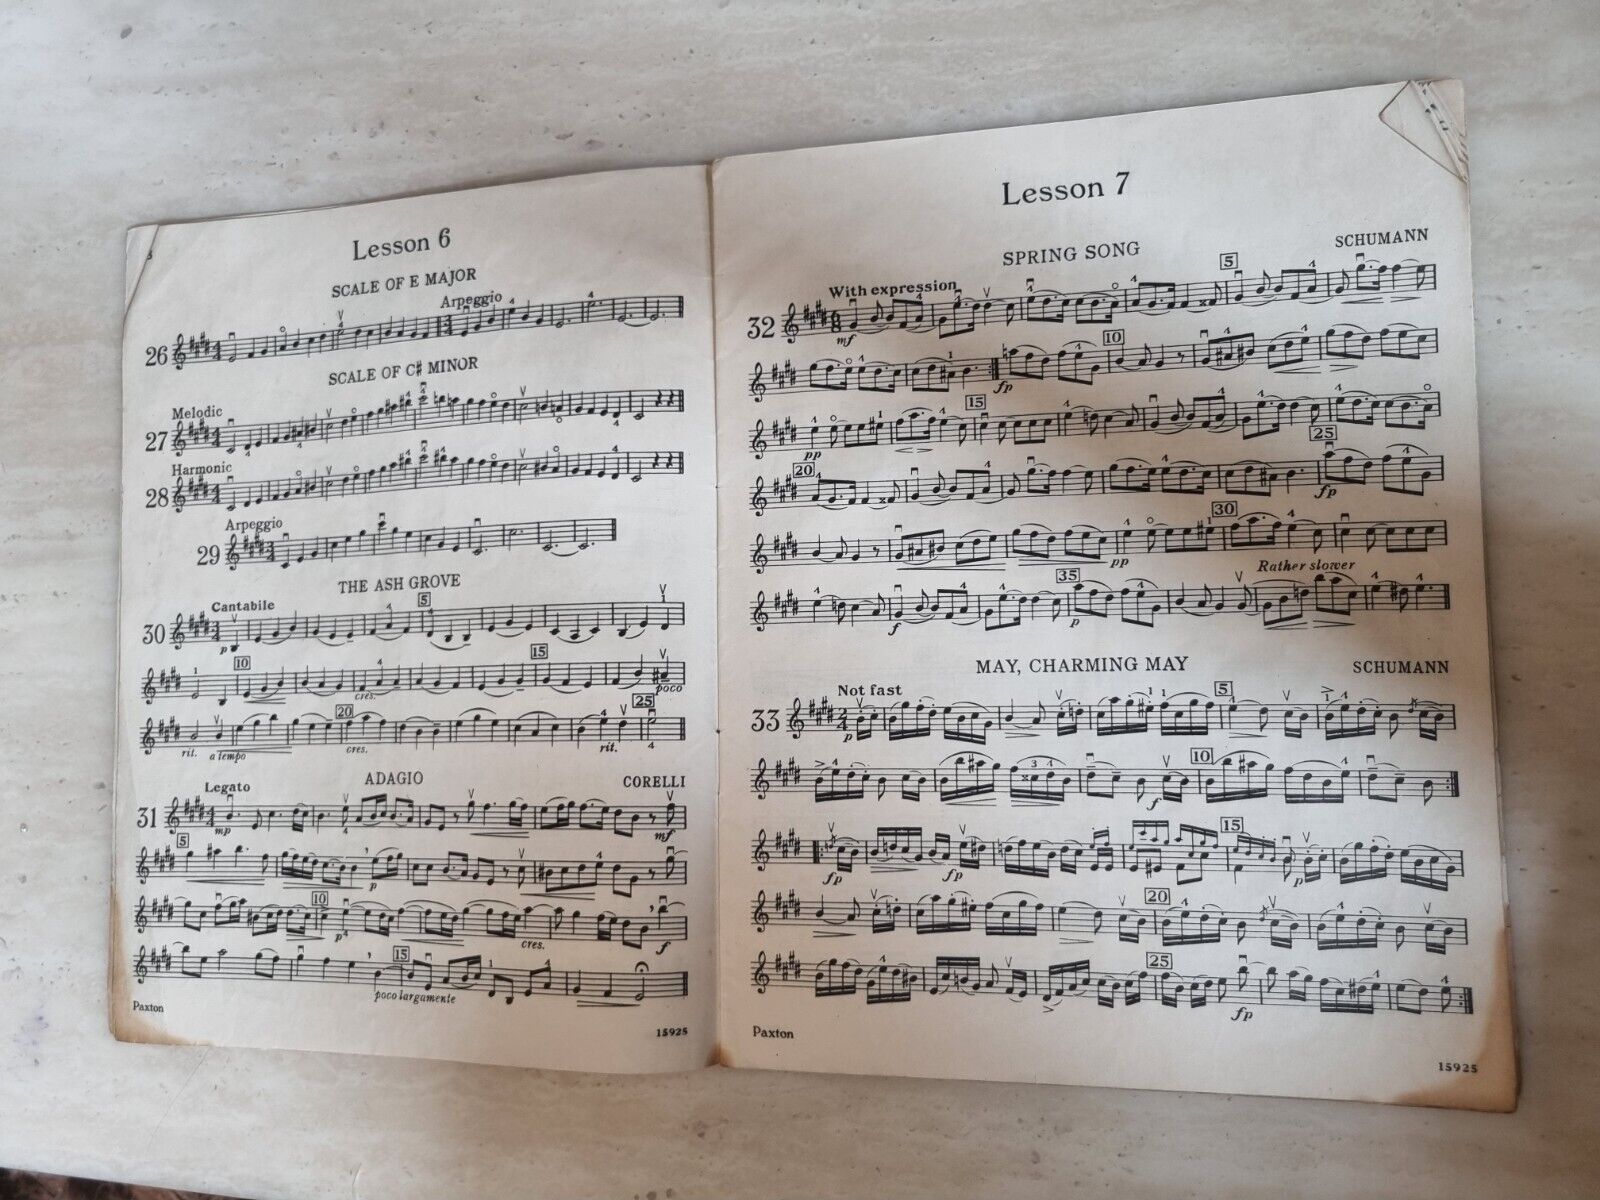 Lesson 6
SCALE OF E MAJOR
Arpeggio
26
SCALE OF C♯ MINOR
Melodic
27
Harmonic
28
Arpeggio
29
THE ASH GROVE
Cantabile
5
30
p
10
15
cres.
poco
20
25
rit.
a tempo
cres.
rit.
ADAGIO
CORELLI
Legato
31
mp
mf
5
p
10
p
cres.
f
15
poco largamente
Paxton
15925
Lesson 7
SPRING SONG
SCHUMANN
With expression
5
32
mf
10
fp
15
pp
20
25
fp
30
pp
Rather slower
35
f
p
MAY, CHARMING MAY
SCHUMANN
Not fast
5
33
p
10
f
15
fp
fp
p
20
25
fp
Paxton
15925